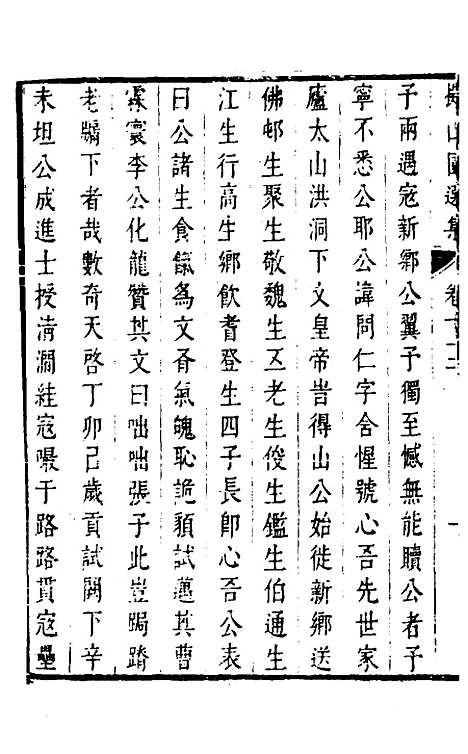 子兩遇寇新鄉公翼子獨至憾無能贖公者子
寧不悉公耶公諱問仁字舍惺號心吾先世家
廬太山洪洞下文皇帝旹得山公始徙新鄉送
佛邨生聚生敬魏生五老生俊生鑑生伯通生
江生行高生鄉飲耆登生四子長卽心吾公表
曰公諸生食餼為文奇氣魄恥詭類試邁其曹
霖寰李公化龍贊其文曰咄咄張子此豈跼蹐
老牖下者哉數奇天啓丁卯己歲貢試闕下辛
未坦公成進士授清澗絓寇嘬于路路貫寇壘